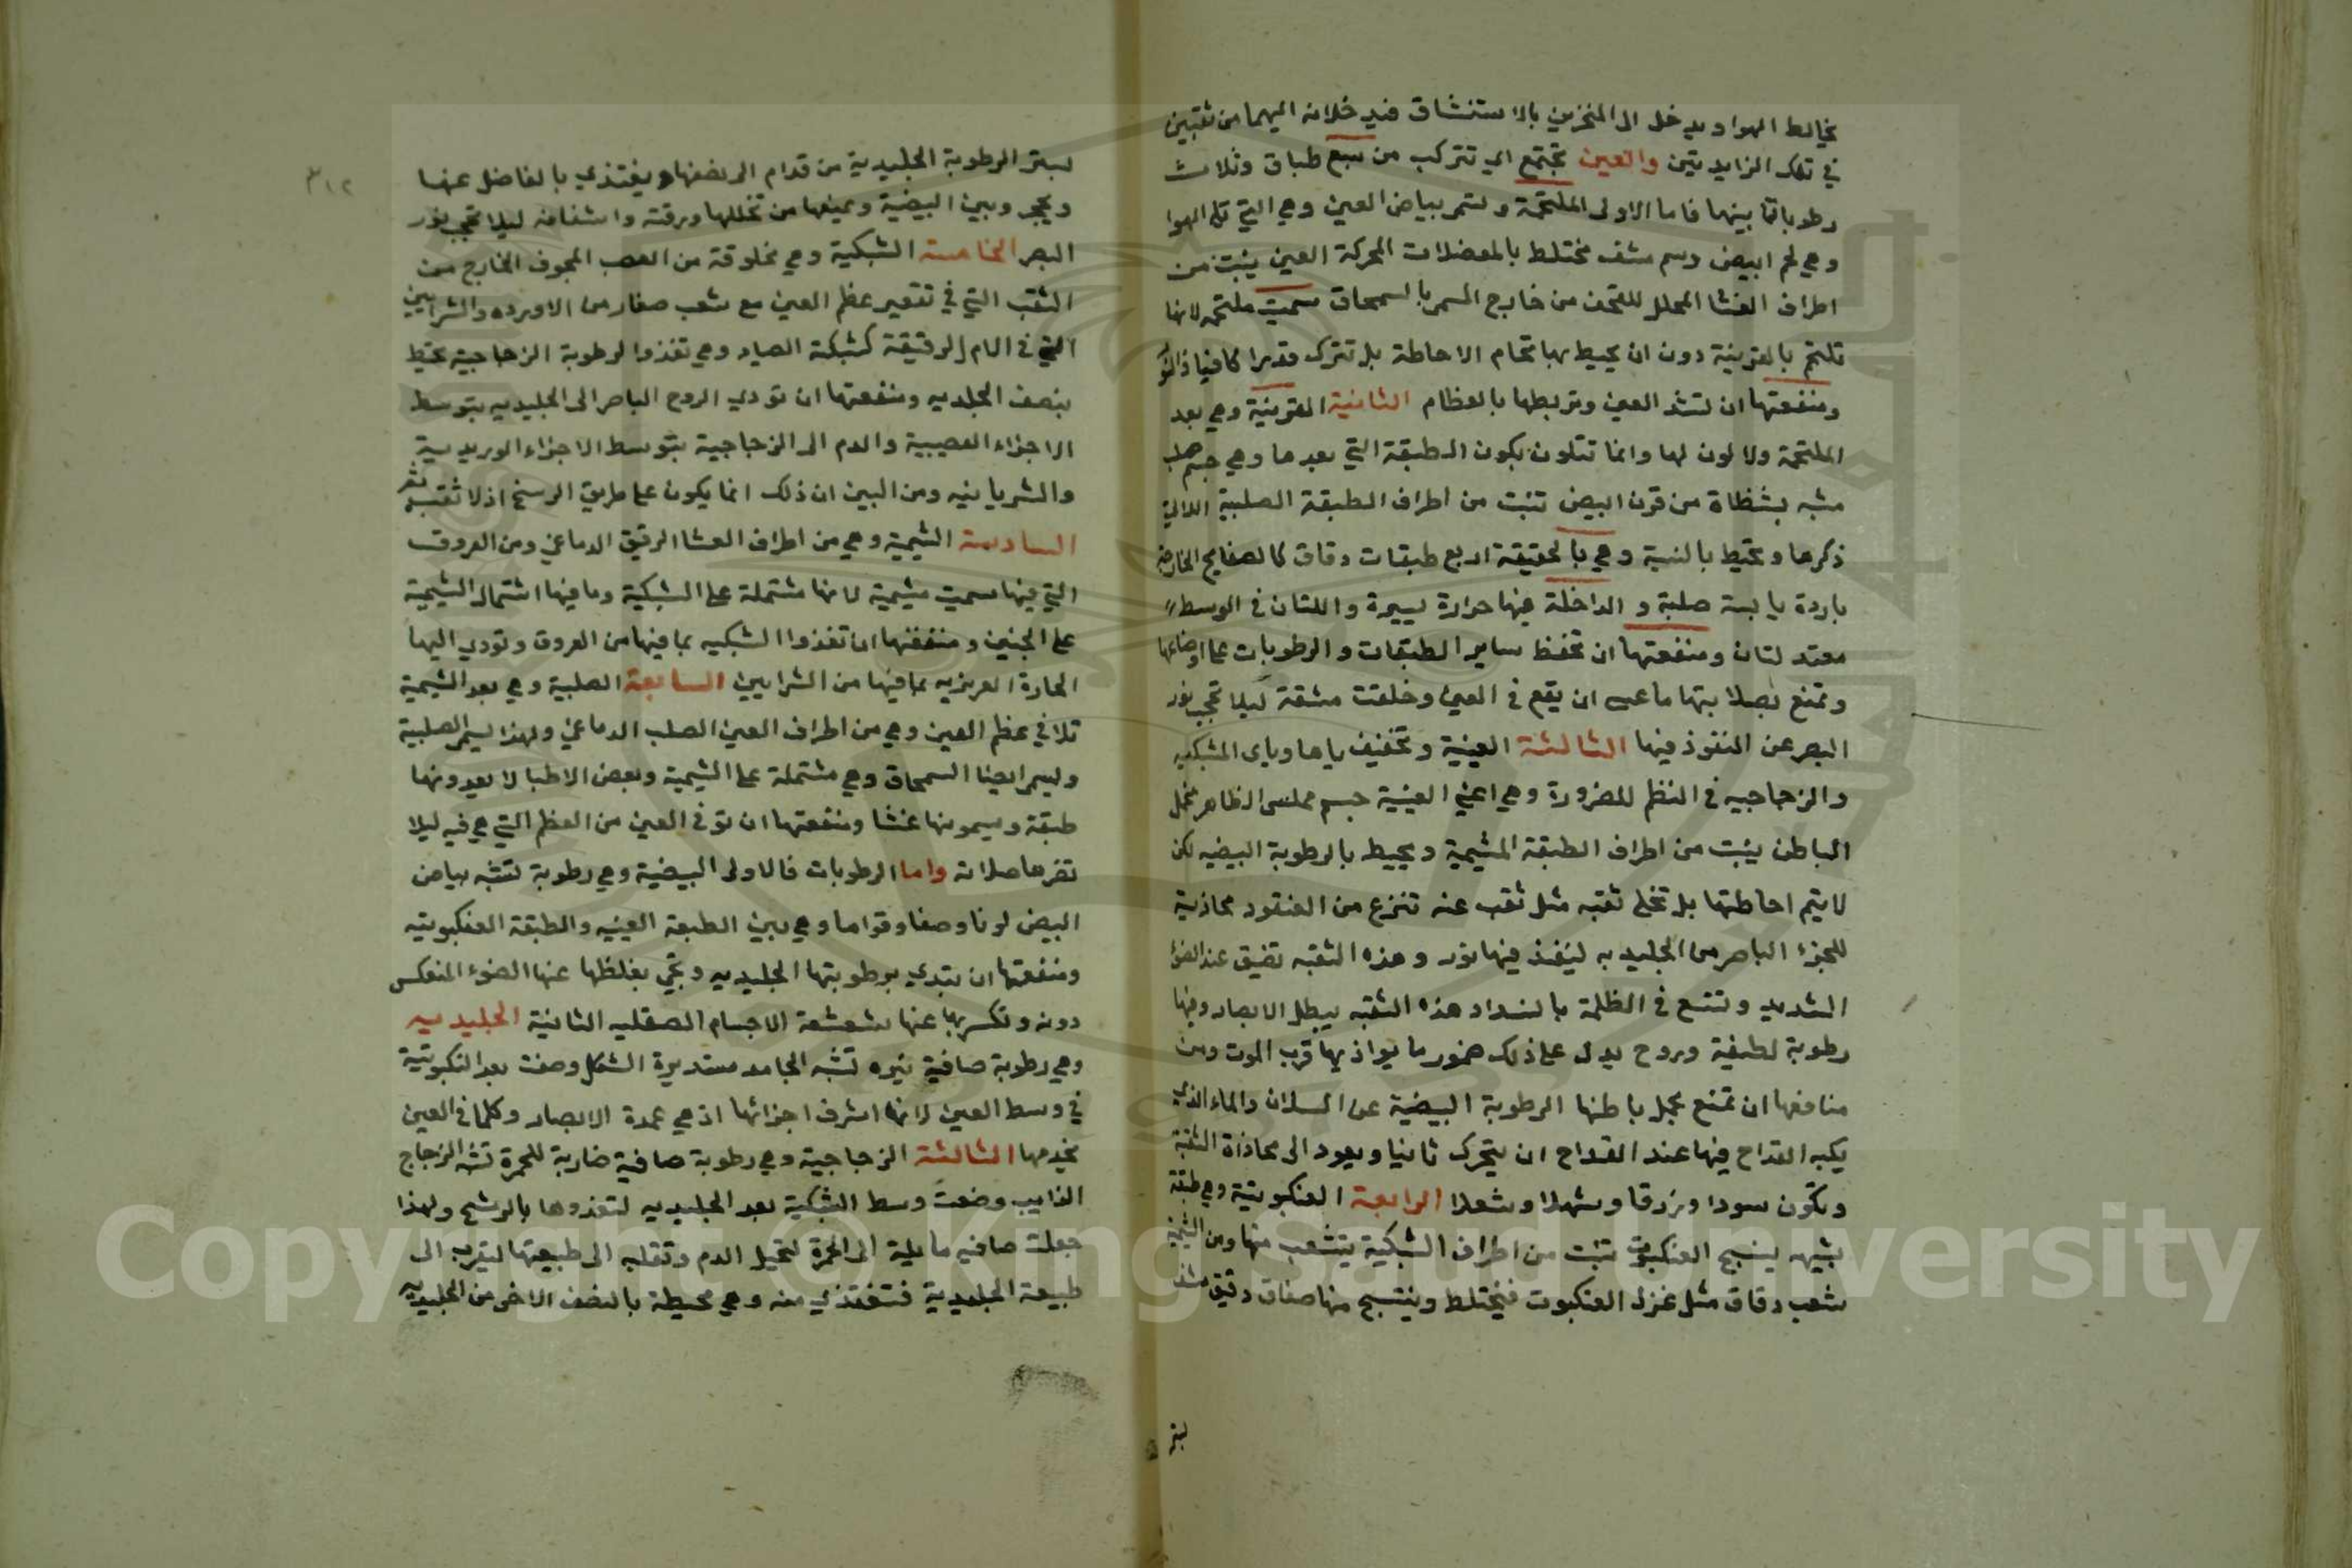 يخالط الهوا ويدخل الى المنخرين بالاستنشاق فيدخلانه اليهما من ثقبين
في تلك الزايديتين والعين تجتمع اي تتركب من سبع طباق وثلاث
رطوباتها بينها فاما الاولى الملتحمة وتسمى بياض العين وهي التي تلي الهوا
وهي لحم ابيض دسم مشف مختلط بالعضلات المحركة العين ينبت من
اطراف الغشا المجلل للقحف من خارج المسمى بالسمحاق سميت ملتحمه لانها
تلتحم بالقرنية دون ان يحيط بها تمام الاحاطة بل تترك قدرا كافيا
ومنفعتها ان تشد العين وتربطها بالعظام الثانية القرنية وهي بعد
الملتحمة ولا لون لها وانما تتلون بلون الطبقة التي بعدها وهي جسم صلب
مشبه بشظاة من قرن ابيض تنبت من اطراف الطبقة الصلبية الاتي
ذكرها وتحيط بالنبية وهي بالحقيقة اربع طبقات دقاق كالصفايح الخارجه
باردة يابسة صلبة و الداخلة فيها حرارة يسيرة واللتان في الوسط
معتدلتان ومنفعتها ان تحفظ ساير الطبقات والرطوبات على اوضاعها
وتمنع بصلابتها ما عسى ان يقع في العين وخلقت مشقة كيلا تحجب نور
البصر عن النفوذ فيها الثالثة العينية وتخفيف ياها وياى المشبكيه
والزجاجيه في النظم للضرورة وهي اعني العينية جسم مملس الظاهر مخمل
الباطن ينبت من اطراف الطبقة المشيمية ويحيط بالرطوبة البيضيه لكن
لا يتم احاطتها بل تخلي ثقبه مثل ثقب عنه تنزع من العنقود محاذية
للجزء الباصر من الجليديه لينفذ فيها نور وهذه الثقبه تضيق عند الضوء
الشديد وتتسع في الظلمة بانسداد هذه الثقبه يبطل الابصار وفيها
رطوبة لطيفة وروح يدل على ذلك ضمور ما يوازيها قرب الموت ومن
منافعها ان تمنع بخمل باطنها الرطوبة البيضية عن السيلان والماء الذي
يكبه القداح فيها عند القداح ان يتحرك ثانيا ويعود الى محاذاة الثقبة
وتكون سودا وزرقا وشهلا وشعلا الرابعة العنكبوتية وهي طبقة
شبيهه بنسج العنكبوت تنبت من اطراف الشبكية يتشعب منها ومن الشيمية
شعب دقاق مثل غزل العنكبوت فيختلط وينتسج منها صفاق دقيق
ليتر
٣١٢
ليستر الرطوبة الجليدية من قدام الى نصفها ويغتذي بالفاضل عنها
ويحجز وبين البيضية ويمنعها من تخللها ورقته واشفافه ليلا تحجب نور
البصر الخامسة الشبكية وهي مخلوقة من العصب المجوف الخارج من
الثقب التي في تقعير عظم العين مع شعب صغار من الاورده والشرايين
التي في الام الرقيقة كشبكة الصياد وهي تغذوا الرطوبة الزجاجية يحيط
بنصف الجلديه ومنفعتها ان تودي الروح الباصر الى الجليديه بتوسط
الاجزاء العصبية والدم الى الزجاجية بتوسط الاجزاء الوريدية
والشريانيه ومن البين ان ذلك انما يكون على طريق الرسخ اذ لا ثقبه
السادسة الشيمية وهي من اطراف الغشا الرقيق الدماغي ومن العروق
التي فيها سميت مشيمية لانها مشتملة على الشبكية وما فيها اشتمال الشيمية
على الجنين ومنفعتها ان تغذوا الشبكيه بما فيها من العروق وتودي اليها
الحارة الغريزيه بما فيها من الشرايين السابعة الصلبية وهي بعد الشيمية
تلاقي عظم العين وهي من اطراف العين الصلب الدماغي ولهذا يسمى الصلبية
وليسمى ايضا السمحاق وهي مشتملة على الشيمية وبعض الاطبا لا يعدونها
طبقة ويسمونها غشا ومنفعتها ان توقي العين من العظم التي هي فيه ليلا
تضرها صلابته واما الرطوبات فالاولى البيضية وهي رطوبة تشبه بياض
البيض لونا وصفا وقواما وهي بين الطبقة العينيه والطبقة العنكبوتيه
ومنفعتها ان بتدي برطوبتها الجليديه وتحمي بغلظها عنها الضوء المنعكس
دونه وتكسر بها عنها شعشعة الاجسام الصقليه الثانية الجليديه
وهي رطوبة صافية نيره تشبه الجامد مستديرة الشكل وصفت بعد النكبوتية
في وسط العين لانها اشرف اجزائها اذ هي عمدة الابصار وكلما في العين
يخدمها الثالثة الزجاجية وهي رطوبة صافية ضاربة للحمرة تشبه الزجاج
الذايب وضعت وسط الشبكية بعد الجليديه لتغذوها بالرشح ولهذا
جعلت صافيه مايلة الى الحمرة لتحيل الدم وتقلبه الى طبيعتها ليقرب الى
طبيعة الجليدية فتغتذي منه وهي محيطة بالنصف الاخر من الجليديه